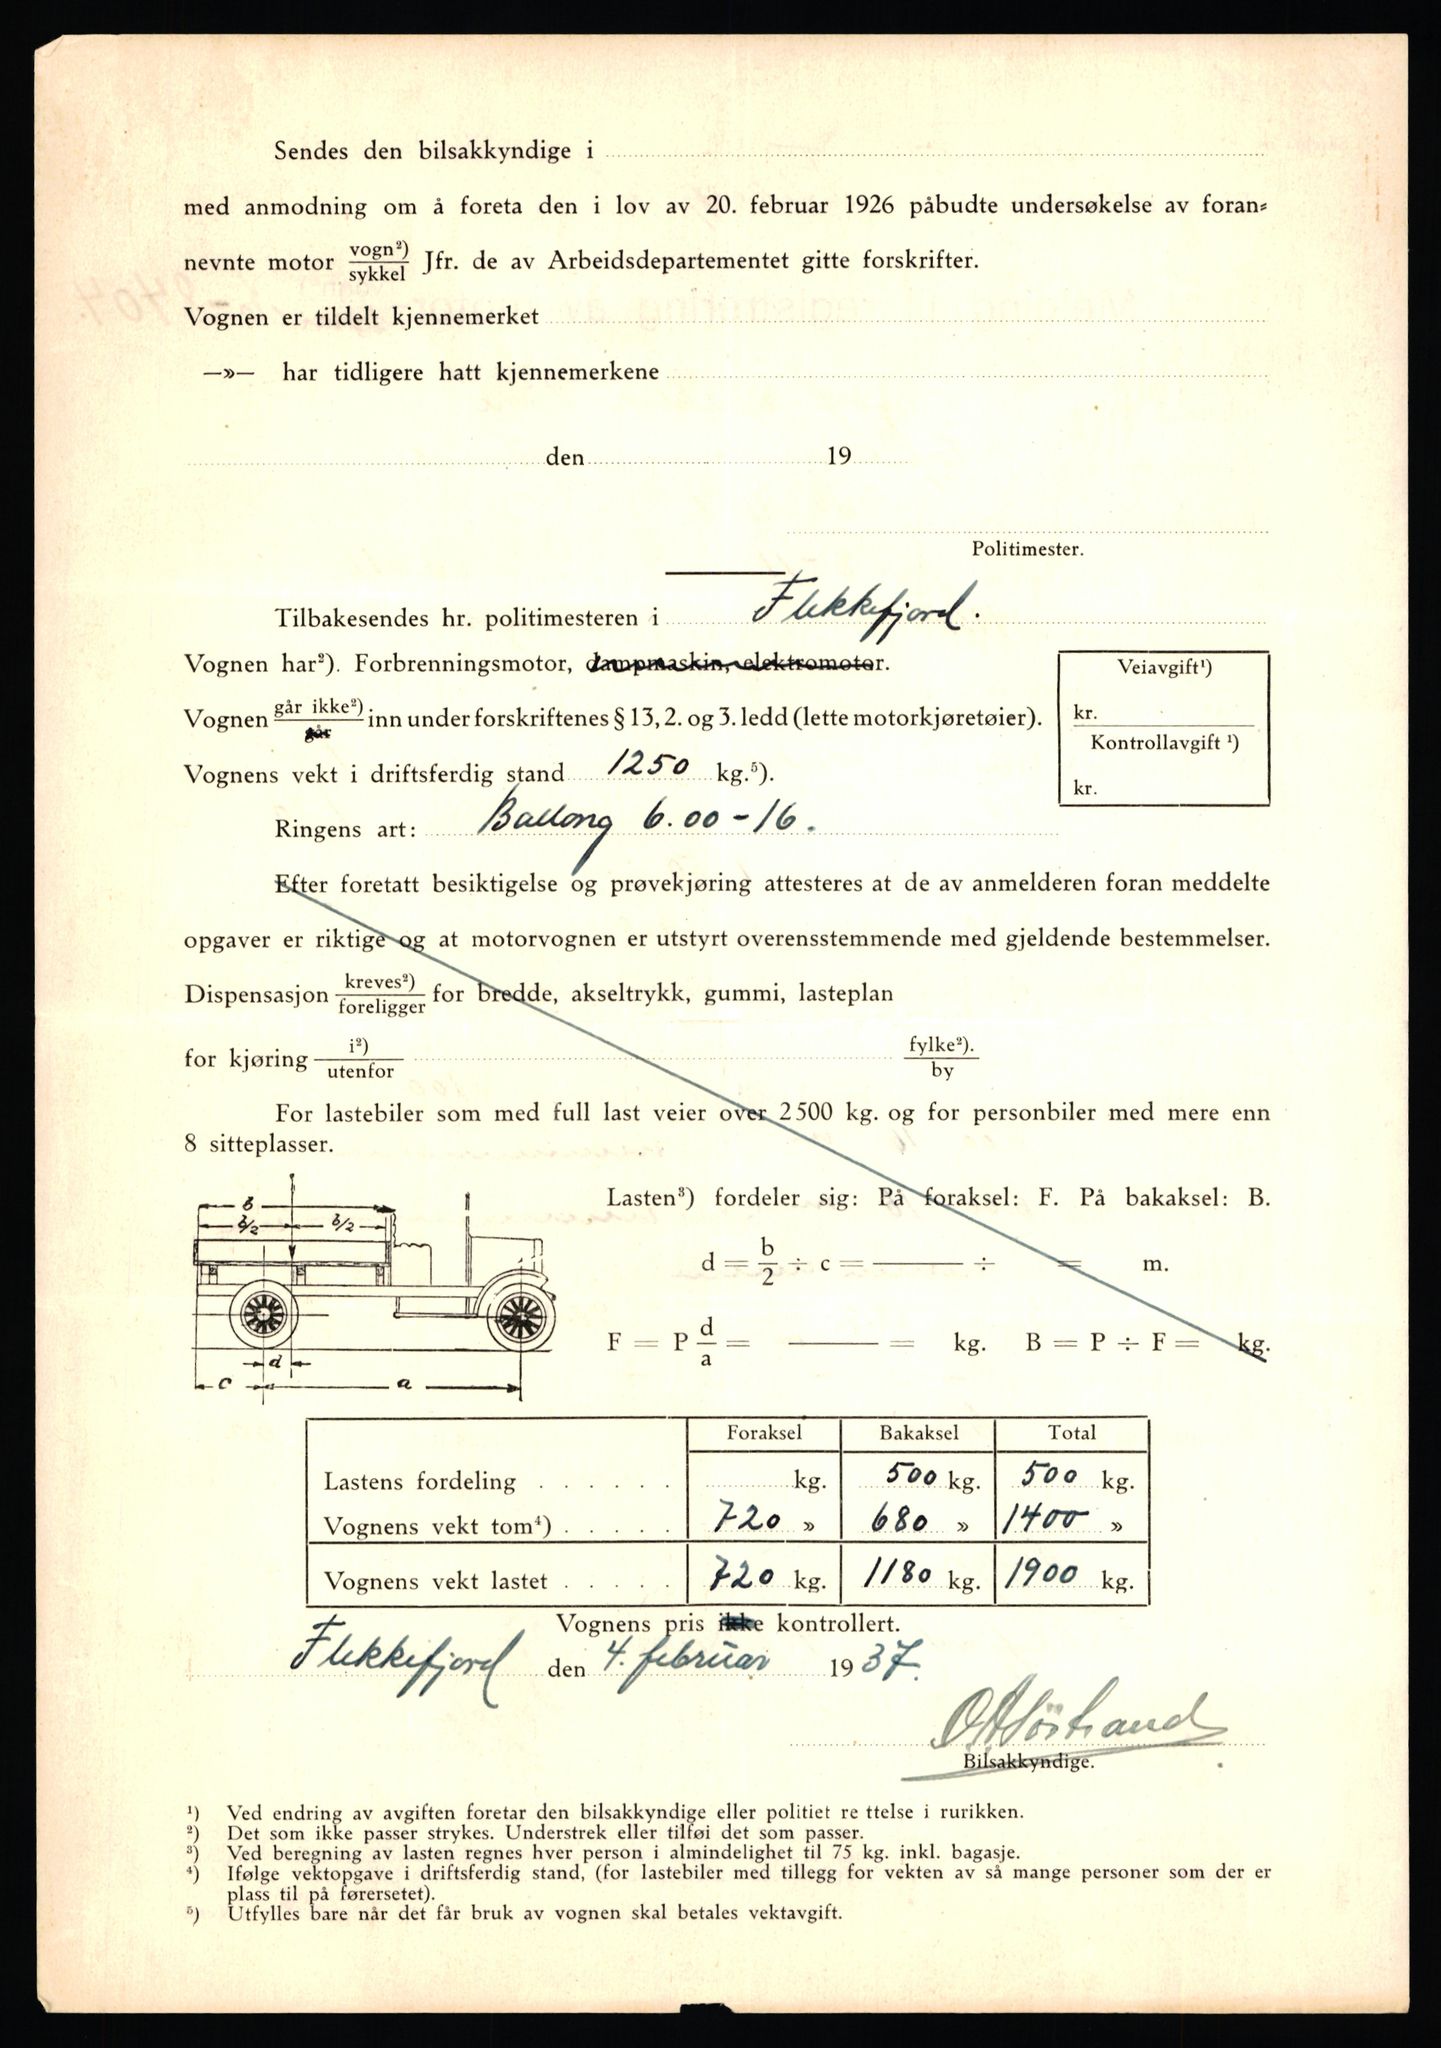 Sendes den bilsakkyndige i
med anmodning om å foreta den i lov av 20. februar 1926 påbudte undersøkelse av foran=
nevnte motor vogn²) / sykkel Jfr. de av Arbeidsdepartementet gitte forskrifter.
Vognen er tildelt kjennemerket
—»— har tidligere hatt kjennemerkene
den 19
Politimester.
Tilbakesendes hr. politimesteren i Flekkefjord.
Vognen har²). Forbrenningsmotor, dampmaskin, elektromotor.
Veiavgift¹)
kr.
Kontrollavgift ¹)
kr.
Vognen går ikke²) / går inn under forskriftenes § 13, 2. og 3. ledd (lette motorkjøretøier).
Vognens vekt i driftsferdig stand 1250 kg.⁵).
Ringens art: Ballong 6.00-16.
Efter foretatt besiktigelse og prøvekjøring attesteres at de av anmelderen foran meddelte
opgaver er riktige og at motorvognen er utstyrt overensstemmende med gjeldende bestemmelser.
Dispensasjon kreves²) / foreligger for bredde, akseltrykk, gummi, lasteplan
for kjøring i²) / utenfor fylke²). / by
For lastebiler som med full last veier over 2500 kg. og for personbiler med mere enn
8 sitteplasser.
b
b/2 b/2
d
c a
Lasten³) fordeler sig: På foraksel: F. På bakaksel: B.
d = b/2 ÷ c = ——— ÷ = m.
F = P d/a = ——— = kg. B = P ÷ F = kg.
Foraksel Bakaksel Total
Lastens fordeling . . . . . . kg. 500 kg. 500 kg.
Vognens vekt tom⁴) . . . . . 720 » 680 » 1400 »
Vognens vekt lastet . . . . . 720 kg. 1180 kg. 1900 kg.
Vognens pris ikke kontrollert.
Flekkefjord den 4. februar 1937.
Bilsakkyndige.
¹) Ved endring av avgiften foretar den bilsakkyndige eller politiet re ttelse i rurikken.
²) Det som ikke passer strykes. Understrek eller tilføi det som passer.
³) Ved beregning av lasten regnes hver person i almindelighet til 75 kg. inkl. bagasje.
⁴) Ifølge vektopgave i driftsferdig stand, (for lastebiler med tillegg for vekten av så mange personer som der er
plass til på førersetet).
⁵) Utfylles bare når det får bruk av vognen skal betales vektavgift.